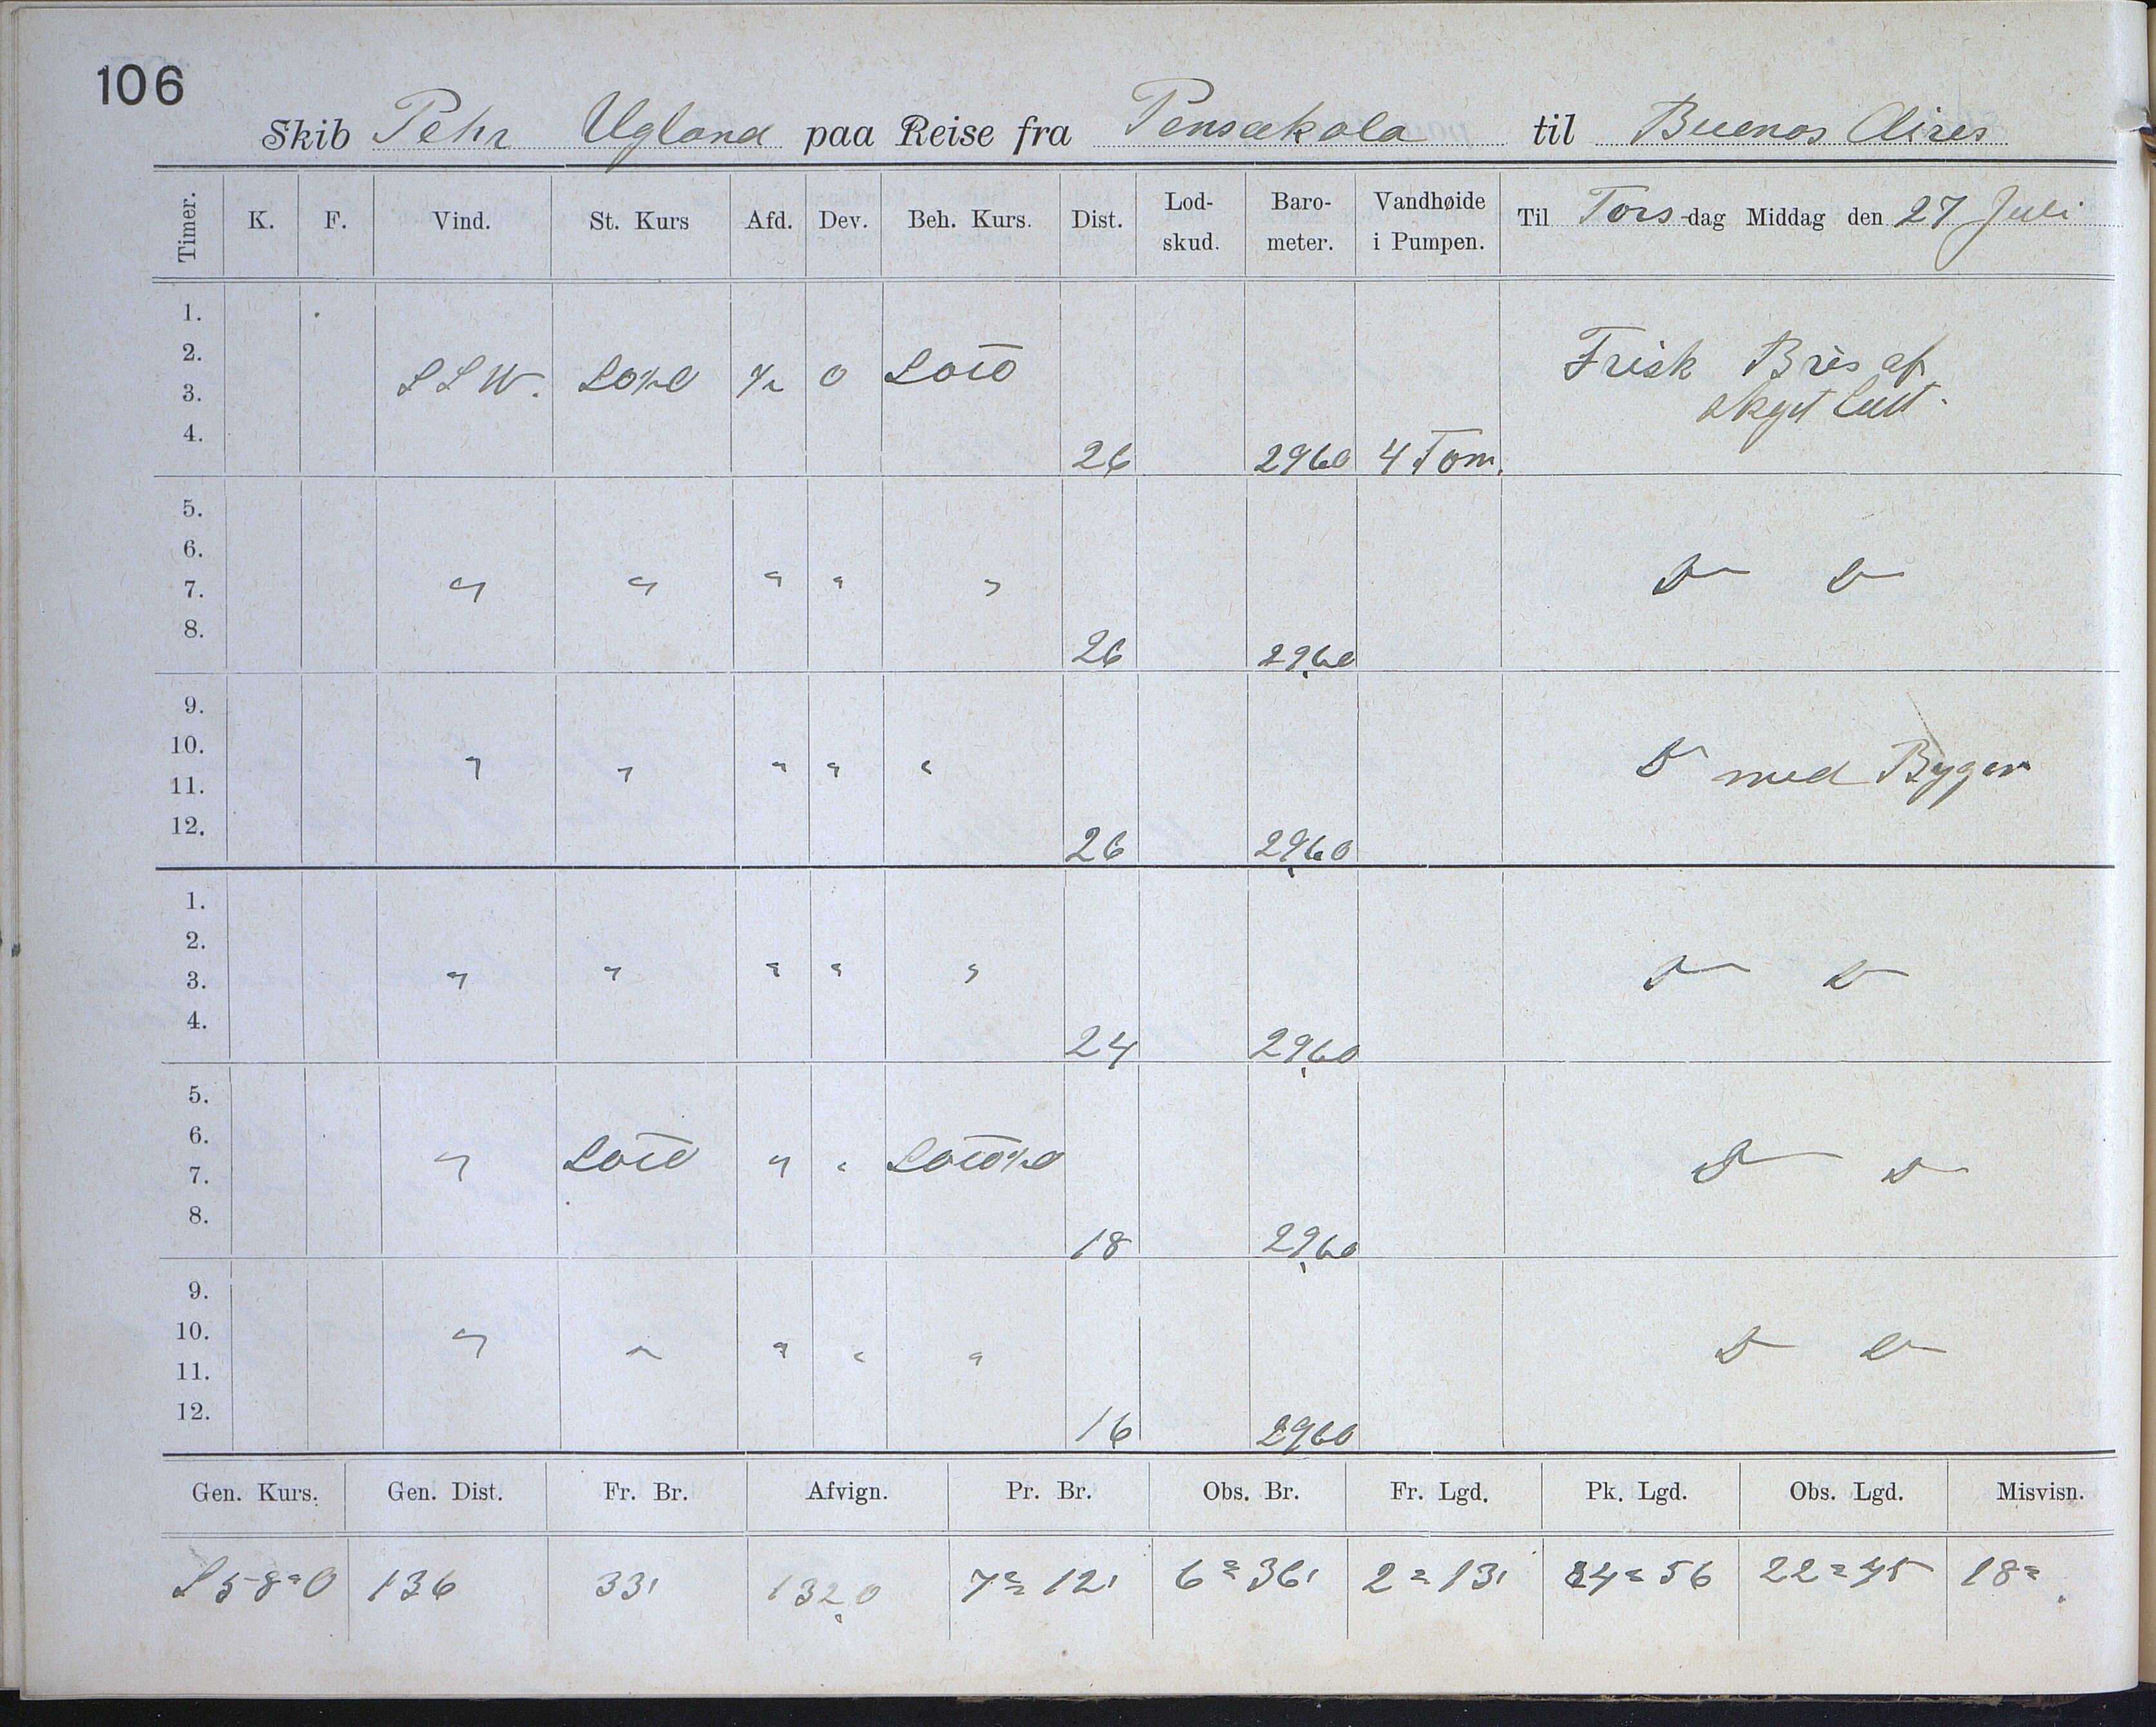 106
Skib Pehr Ugland paa Reise fra Pensakola til Buenos Aires
Timer. K. F. Vind. St. Kurs Afd. Dev. Beh. Kurs. Dist. Lod-skud. Baro-meter. Vandhøide i Pumpen. Til Tors-dag Middag den 27 Juli
1.
2. Frisk Bris af
3. SSW. ½ 0 SOtO skyet Luft.
4. 26 2960 4 Tom.
5.
6.
7. " " " " " Do Do
8. 26 29,60
9.
10.
11. " " " " " Do med Byger
12. 26 29,60
1.
2.
3. " " " " " Do Do
4. 24 29,60
5.
6.
7. " SOtO " " SOtO½O Do Do
8. 18 29,60
9.
10.
11. " " " " " Do Do
12. 16 2960
Gen. Kurs. Gen. Dist. Fr. Br. Afvign. Pr. Br. Obs. Br. Fr. Lgd. Pk. Lgd. Obs. Lgd. Misvisn.
S 58° O 136 33' 132,0 7° 12' 6° 36' 2° 13' 24° 56 22° 45 18°